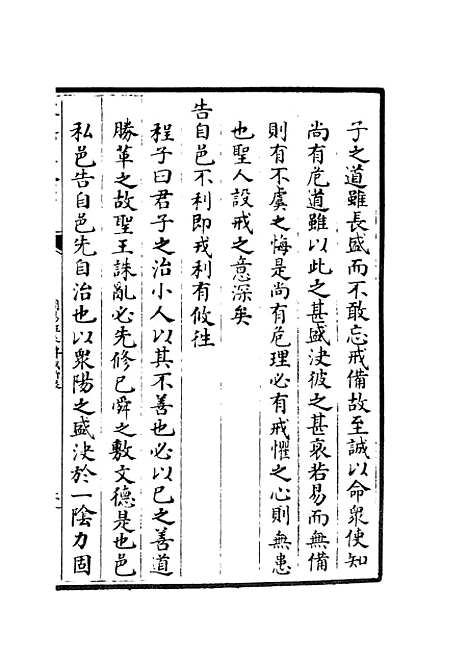 子之道雖長盛而不敢忘戒備故至誠以命衆使知
尚有危道雖以此之甚盛决彼之甚衰若易而無備
則有不虞之悔是尚有危理必有戒懼之心則無患
也聖人設戒之意深矣
告自邑不利即戎利有攸往
程子曰君子之治小人以其不善也必以已之善道
勝革之故聖王誅亂必先修已舜之敷文德是也邑
私邑告自邑先自治也以衆陽之盛决於一陰力固